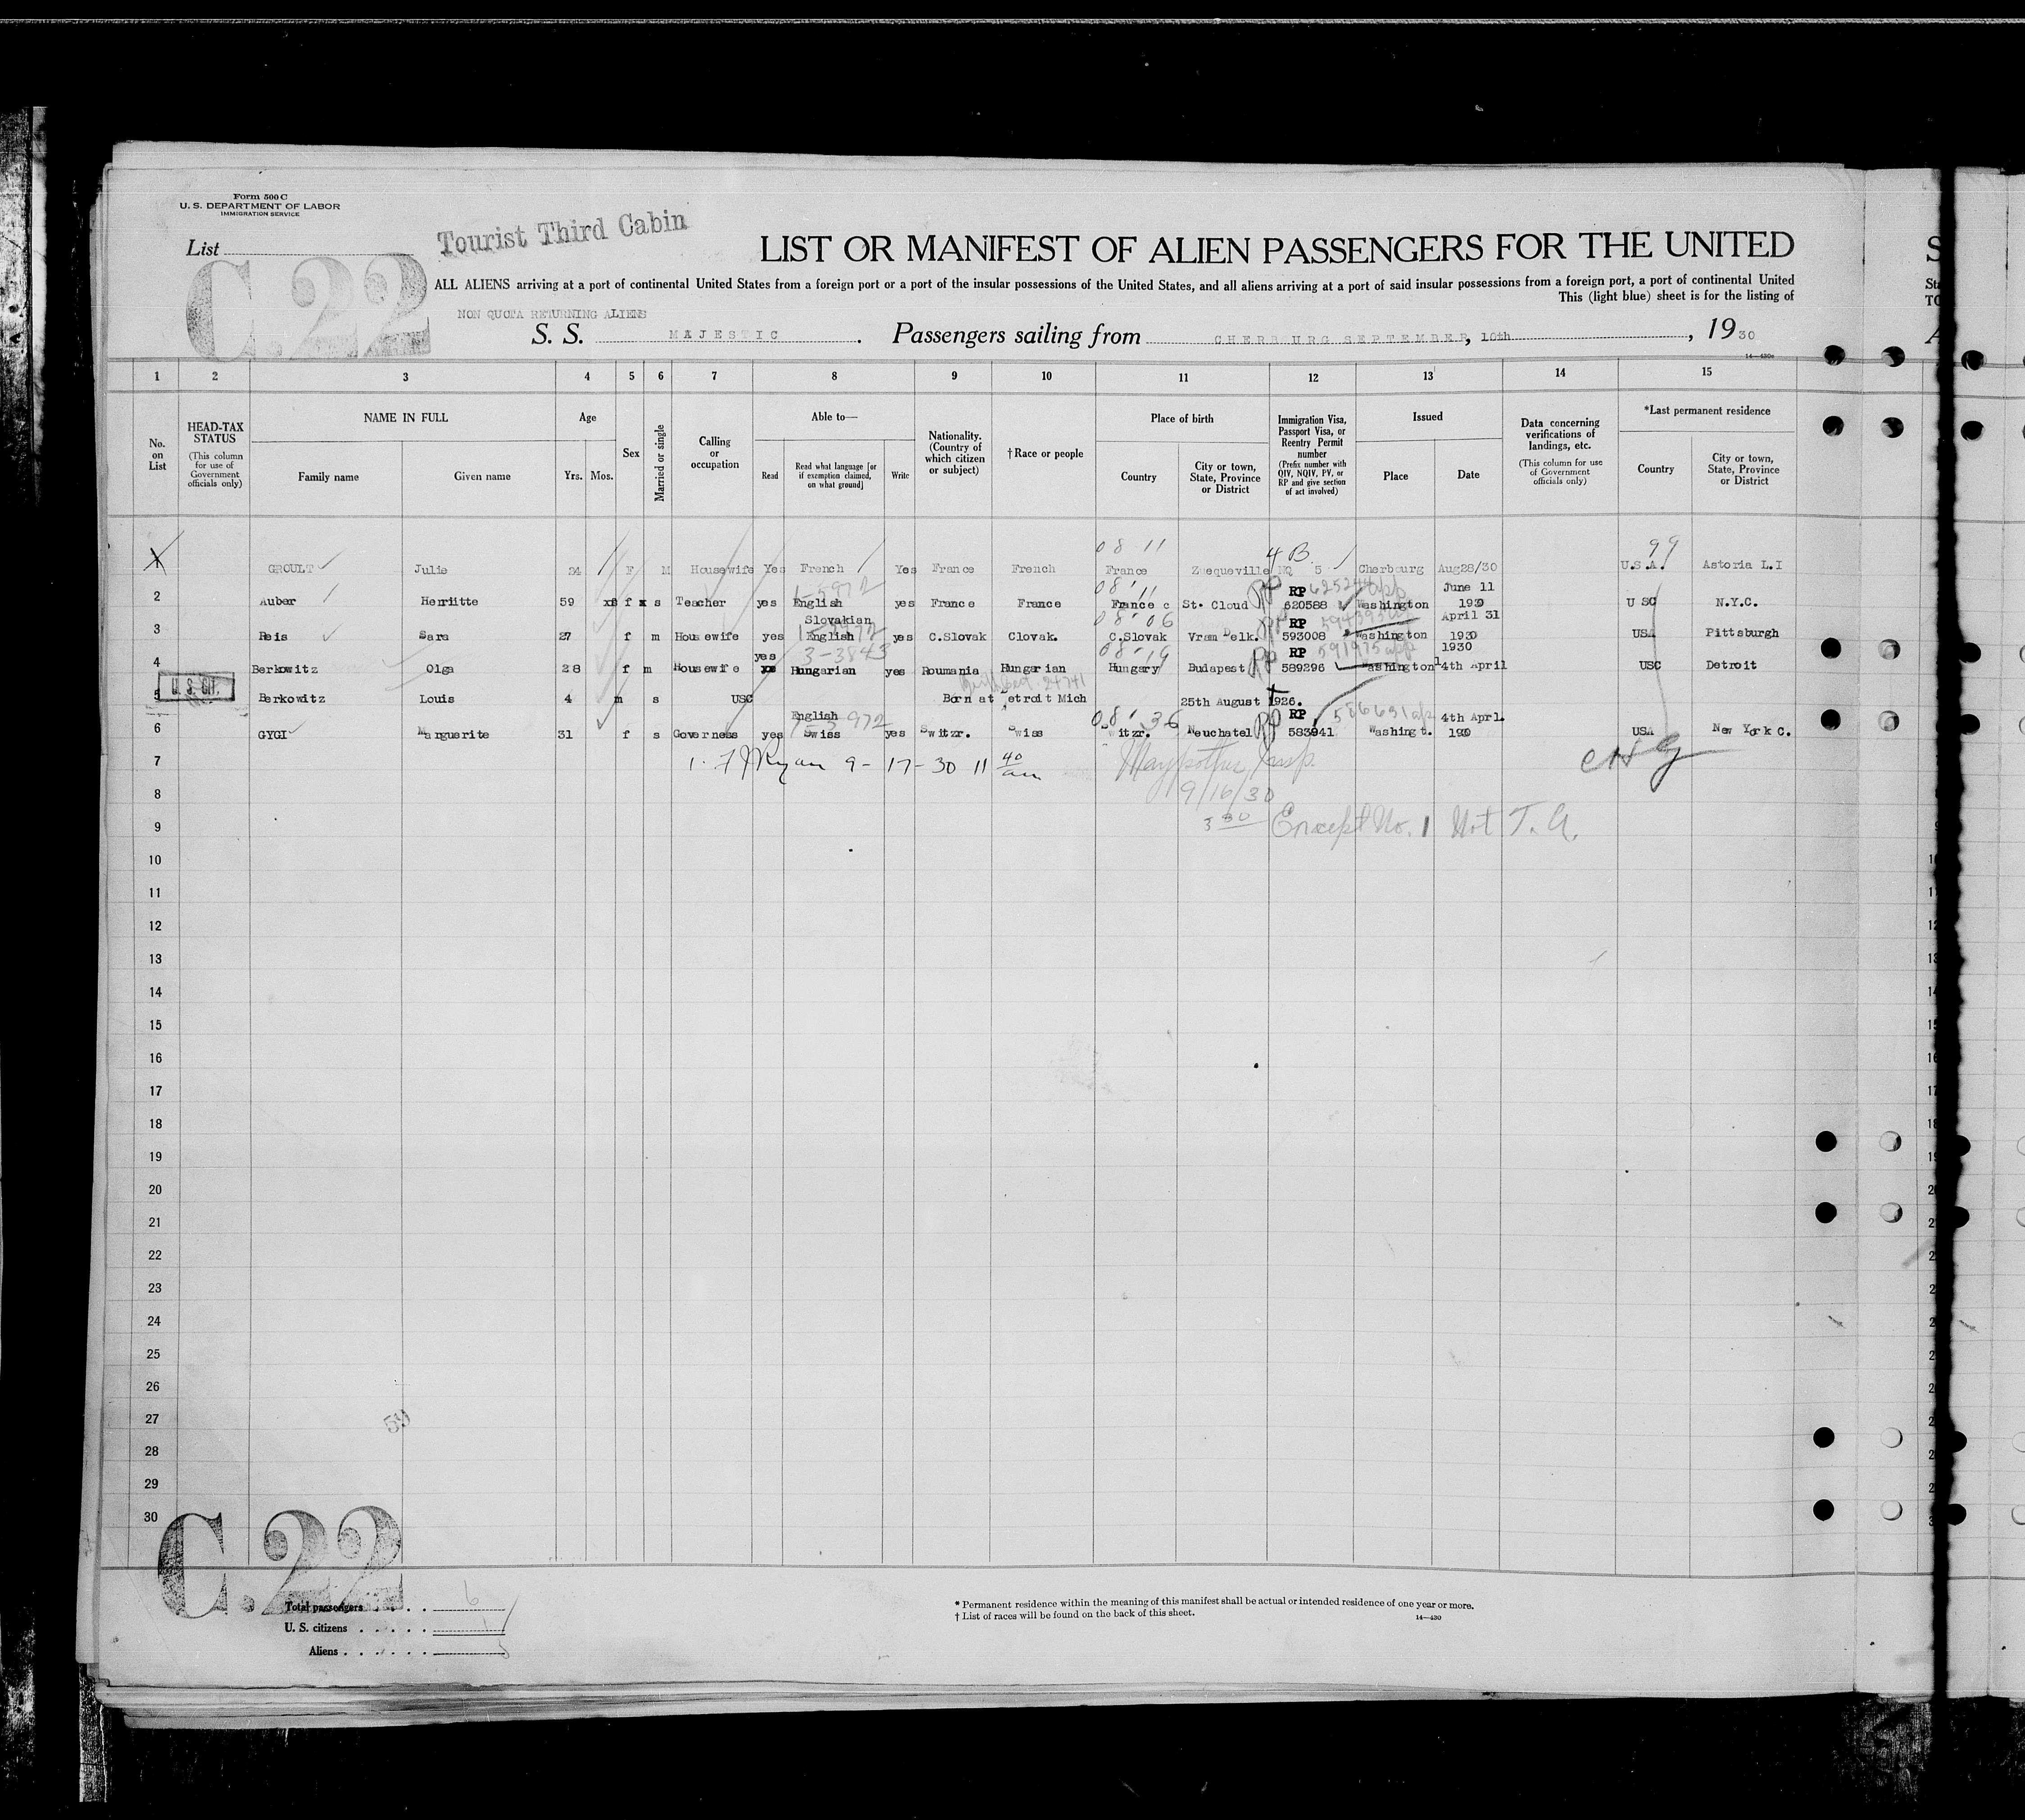 Form 500 C
U. S. DEPARTMENT OF LABOR
IMMIGRATION SERVICE
List
C.22
Tourist Third Cabin
LIST OR MANIFEST OF ALIEN PASSENGERS FOR THE UNITED
ALL ALIENS arriving at a port of continental United States from a foreign port or a port of the insular possessions of the United States, and all aliens arriving at a port of said insular possessions from a foreign port, a port of continental United
This (light blue) sheet is for the listing of
NON QUOTA RETURNING ALIENS
S. S. MAJESTIC. Passengers sailing from CHERB URG SEPTEMBER, 10th, 1930
14—430c
1 2 3 4 5 6 7 8 9 10 11 12 13 14 15
No. on List
HEAD-TAX STATUS (This column for use of Government officials only)
NAME IN FULL Family name Given name
Age Yrs. Mos.
Sex
Married or single
Calling or occupation
Able to— Read Read what language [or if exemption claimed, on what ground] Write
Nationality. (Country of which citizen or subject)
† Race or people
Place of birth Country City or town, State, Province or District
Immigration Visa, Passport Visa, or Reentry Permit number (Prefix number with QIV, NQIV, PV, or RP and give section of act involved)
Issued Place Date
Data concerning verifications of landings, etc. (This column for use of Government officials only)
*Last permanent residence Country City or town, State, Province or District
08 11 4 B 99
1 GROULT Julie 24 F M Housewife Yes French Yes France French France Zuequeville NQ 5 Cherbourg Aug28/30 U.S.A. Astoria L.I
1-5972 08 11 RP 625244 app June 11
2 Auber Herriitte 59 f s Teacher yes English yes France France France c St. Cloud RP 620588 Washington 1930 U SC N.Y.C.
Slovakian 08 06 RP April 31
3 Reis Sara 27 f m Housewife yes English yes C.Slovak Clovak. C.Slovak Vram Delk. RP 593008 Washington 1930 USA Pittsburgh
yes 3-3843 08-19 RP 591975 app 1930
4 Berkowitz Olga 28 f m Housewife Hungarian yes Roumania Hungarian Hungary Budapest RP 589296 Washington 14th April USC Detroit
U. S. CIT. Birth Cert. 24741
5 Berkowitz Louis 4 m s USC Born at Detroit Mich 25th August 1926.
English 1-5972 08 36 RP 586631 app 4th Aprl.
6 GYGI Marguerite 31 f s Governess yes Swiss yes Switzr. Swiss Switzr. Neuchatel RP 583941 Washingt. 1930 USA New York C.
7 1. F J Ryan 9-17-30 11 40 am Insp.
8 9/16/30
9 3 00 Except No. 1 Not T. A.
10
11
12
13
14
15
16
17
18
19
20
21
22
23
24
25
26
27
59
28
29
30
C.22
Total passengers . . . . 6
U. S. citizens . . . . . 1
Aliens . . . . . . 5
* Permanent residence within the meaning of this manifest shall be actual or intended residence of one year or more.
† List of races will be found on the back of this sheet. 14—430